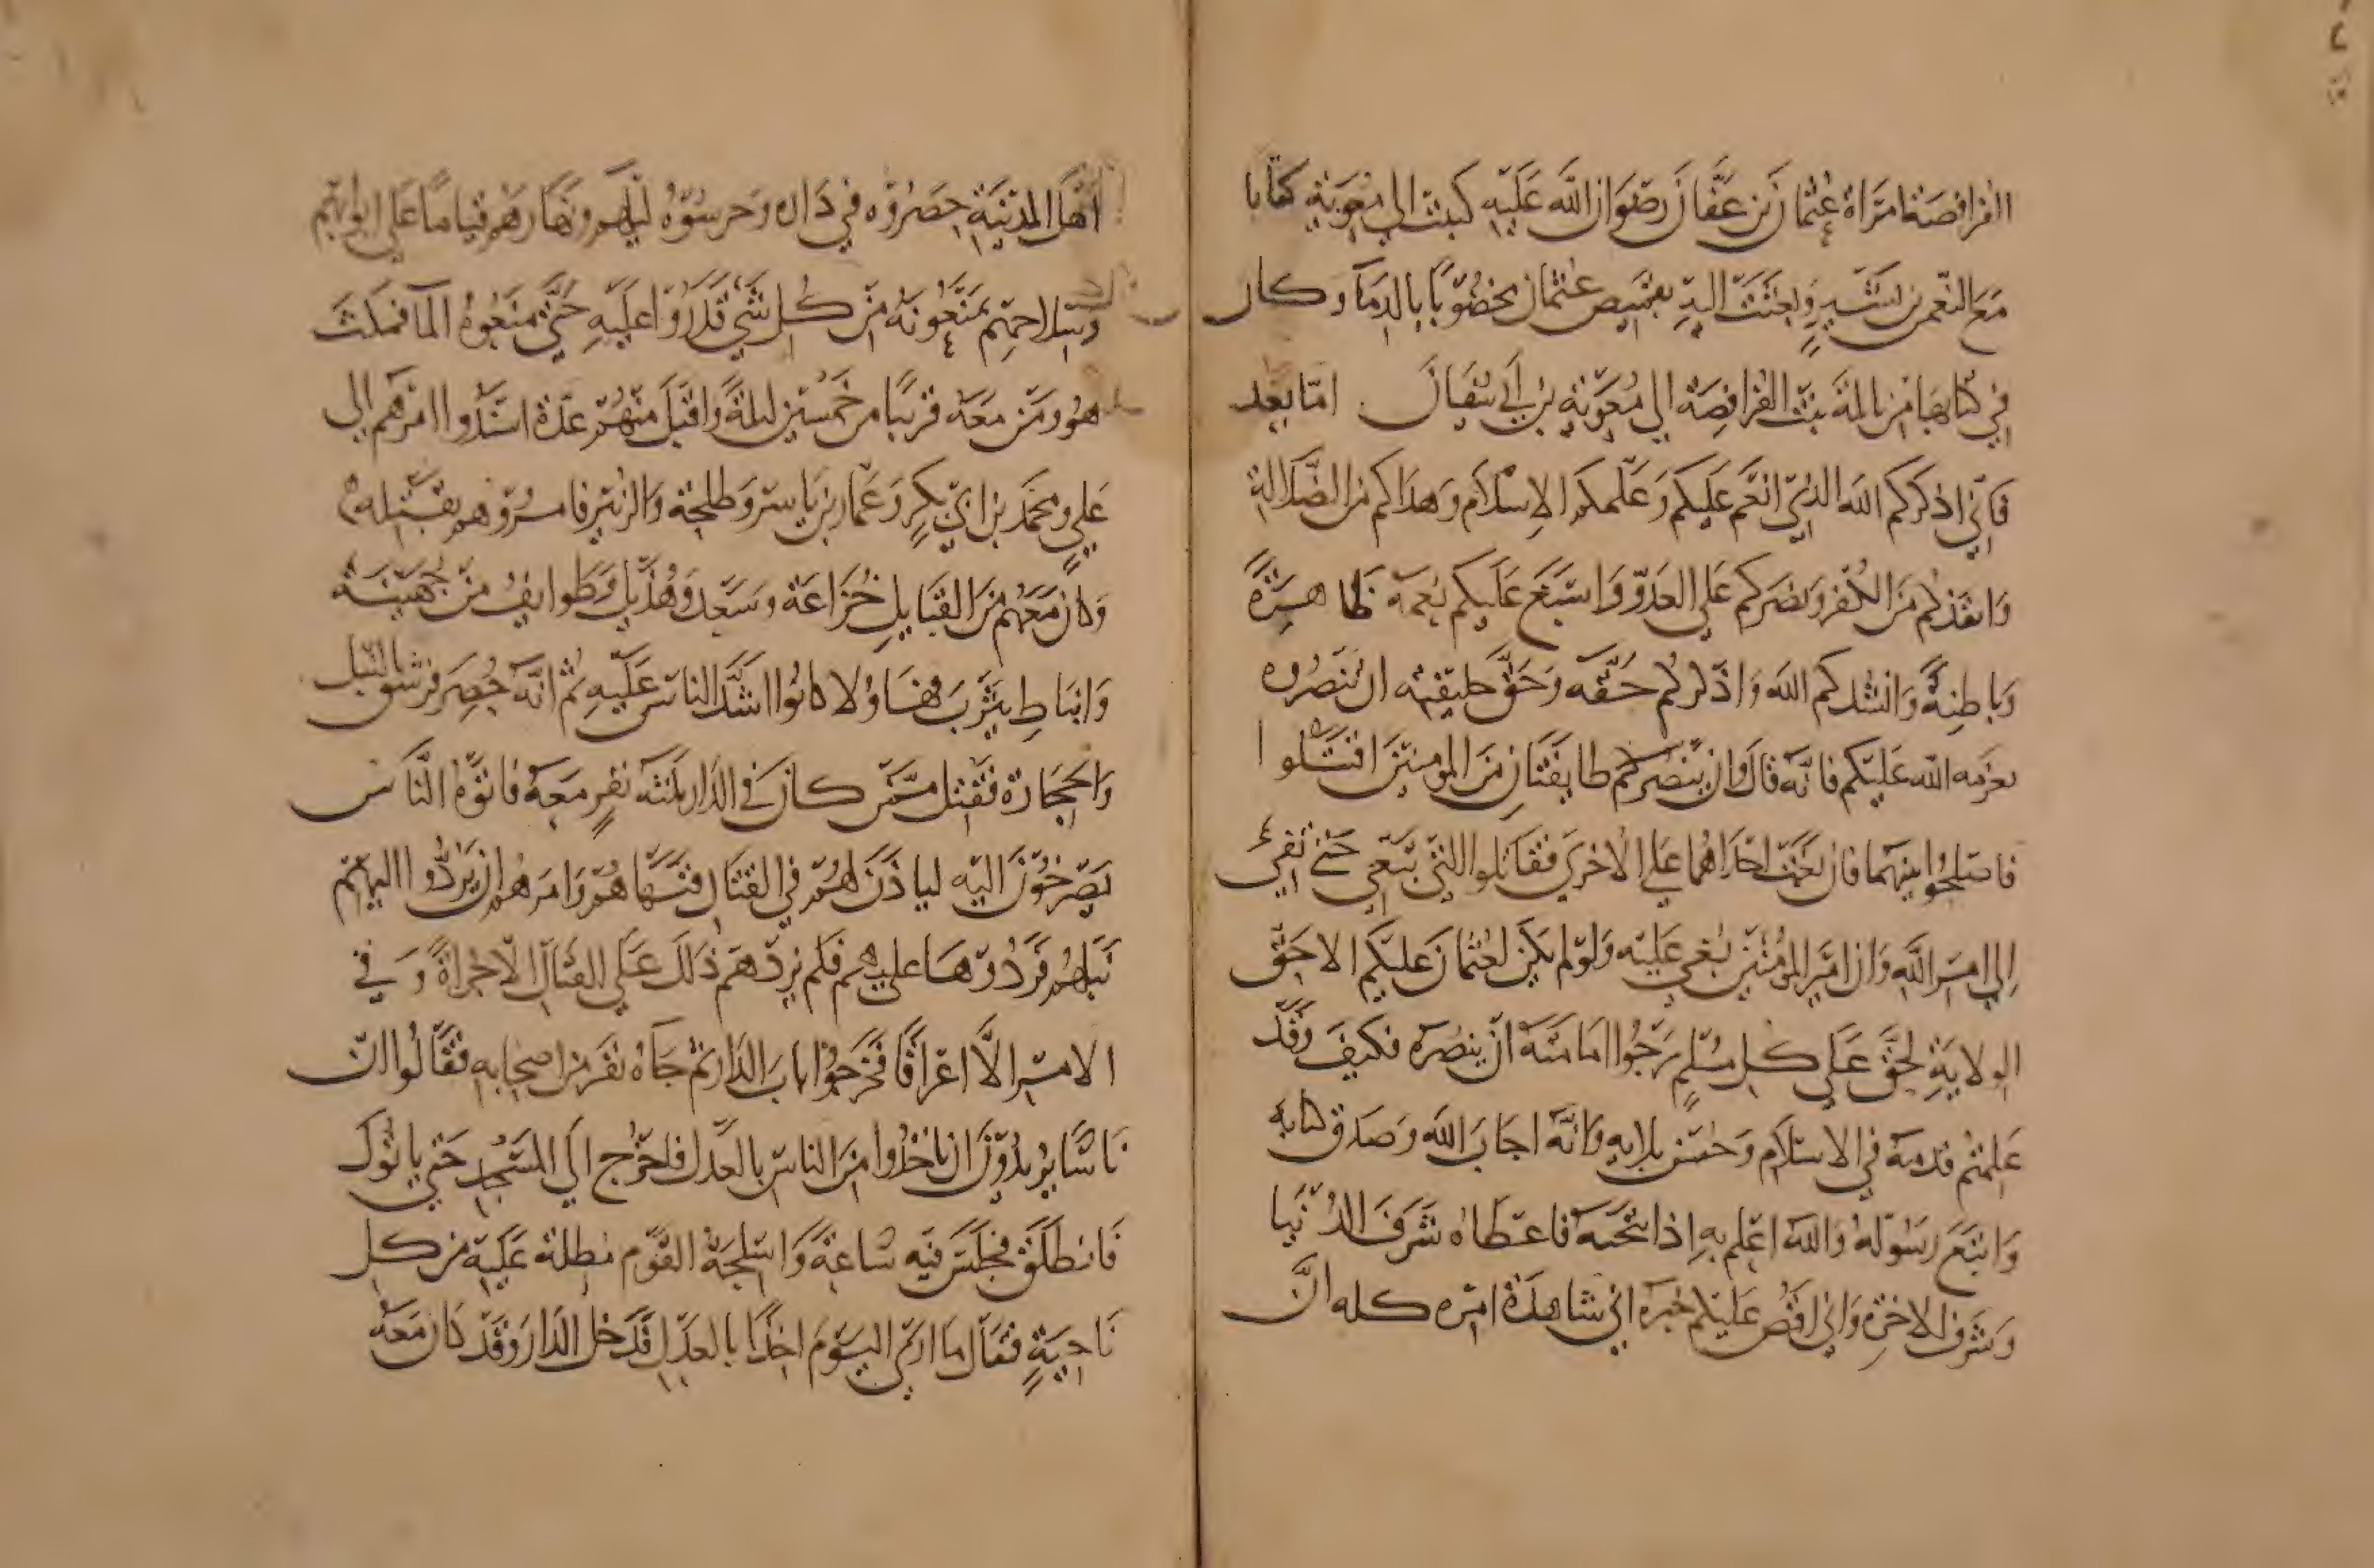 الفرافصة امرأة عثمان بن عفان رضوان الله عليه كتبت الي معوية كتابا
مع النعمن بن بشير وبعثت اليه بقميص عثمان مخضوبا بالدما وكان
في كتابها من نائلة بنت الفرافصة الي معوية بن ابي سفيان اما بعد
فاني اذكركم الله الذي انعم عليكم وعلمكم الاسلام وهداكم من الضلالة
وانقذكم من الكفر ونصركم علي العدو واسبغ عليكم نعمه ظاهرة
وباطنة وانشدكم الله واذكركم حقه وحق خليفته ان تنصروه
بعزمه الله عليكم فانه قال وان طايفتان من المومنين اقتتلوا
فاصلحوا بينهما فان بغت احداهما علي الاخري فقاتلوا التي تبغي حتي تفيء
الي امر الله وان امير المؤمنين بغي عليه ولو لم يكن لعثمان عليكم الا حق
الولاية لحق علي كل مسلم يرجوا امامته ان ينصره فكيف وقد
علمتم قدمه في الاسلام وحسن بلايه وانه اجاب الله وصدق كتابه
واتبع رسوله والله اعلم به اذا انتخبه فاعطاه شرف الدنيا
وشرف الاخرة واني اقص عليكم خبره اني شاهدة امره كله ان
اهل المدينة حصروه في داره وحرسوه ليلهم ونهارهم قياما علي ابوابهم
وسلاحهم يمنعونه من كل شي قدروا عليه حتي منعوه الما فمكث
هو ومن معه قريبا من خمسين ليلة واقبل منهم عدة اسندوا امرهم الي
علي ومحمد بن ابي بكر وعمار بن ياسر وطلحة والزبير فامروهم بقتله
وكان معهم من القبايل خزاعة وسعد وهذيل وطوايف من جهينة
وانباط يثرب فهاولا كانوا اشد الناس عليه ثم انه حصر فرشق بالنبل
والحجارة فقتل ممن كان في الدار ثلثه نفر معه فاتوه الناس
يصرخون اليه لياذن لهم في القتال فنهاهم وامرهم ان يردوا اليهم
نبلهم فردوها عليهم فلم يزدهم ذلك علي القتال الا جراة وفي
الامر الا اغراقا فخرجوا باب الدار ثم جاه نفر من اصحابه فقالوا ان
ناسا يريدون ان ناخذوا من الناس بالعدل فاخرج الي المسجد حتي ياتوك
فانطلق فجلس فيه ساعة واسلحة القوم مطلة عليه من كل
ناحية فقال ما اري اليوم احدا بالعدل فدخل الدار وقد كان معه